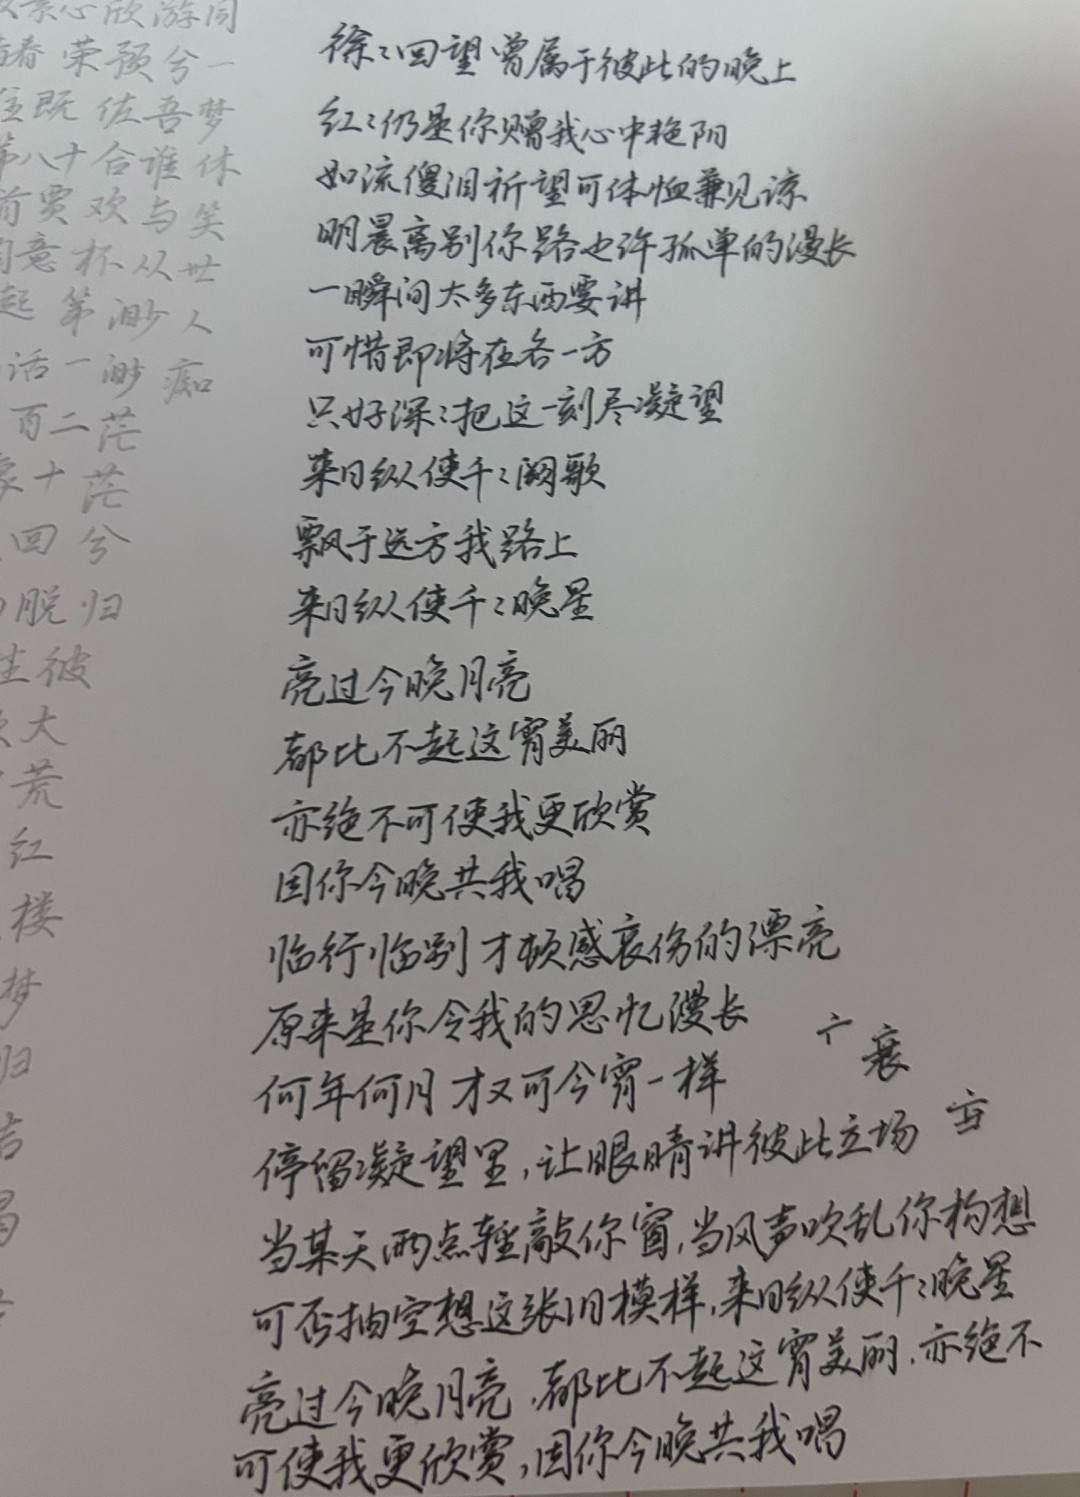 徐々回望曾属于彼此的晚上
红々仍是你赠我心中艳阳
如流傻泪祈望可体恤兼见谅
明晨离别你路也许孤单的漫长
一瞬间太多东西要讲
可惜即将在各一方
只好深々把这一刻尽凝望
来日纵使千々阙歌
飘于远方我路上
来日纵使千々晚星
亮过今晚月亮
都比不起这宵美丽
亦绝不可使我更欣赏
因你今晚共我唱
临行临别才顿感哀伤的漂亮
原来是你令我的思忆漫长
何年何月才又可今宵一样
停留凝望里,让眼睛讲彼此立场
当某天雨点轻敲你窗,当风声吹乱你构想
可否抽空想这张旧模样,来日纵使千々晚星
亮过今晚月亮,都比不起这宵美丽,亦绝不
可使我更欣赏,因你今晚共我唱
亠 衰
心欣游同
春荣预兮一
既佐吾梦
第八十合谁休
前贾欢与笑
意杯从世
起第渺人
话一渺痴
百二茫
十茫
回兮
脱归
生彼
大
荒
红
楼
梦
归